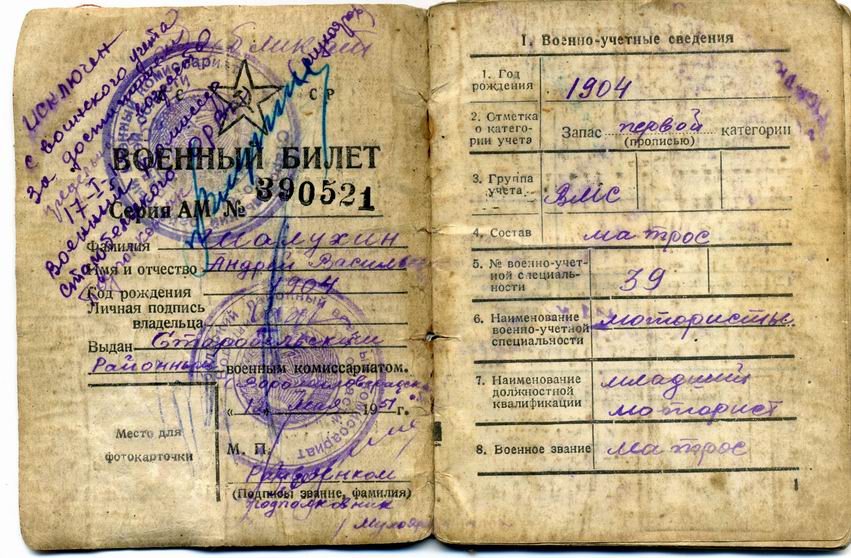 Исключен
с воинского учета
за достижением
предельного возраста
17-I-
Военный комиссар
Старобельского РВК
СССР
ВОЕННЫЙ БИЛЕТ
Серия АМ № 390521
Фамилия Малухин
Имя и отчество Андрей Василье
Год рождения 1904
Личная подпись
владельца
Выдан Старобельский
Районный военным комиссариатом.
Ворошиловградской
мая 1951 г.
Место для
фотокарточки
М. П.
Райвоенком
(Подпись звание, фамилия)
подполковник
1. Военно-учетные сведения
1. Год
рождения
1904
2. Отметка
о катего-
рии учета
Запас первой категории
(прописью)
3. Группа
учета
ВМС
4. Состав
матрос
5. № военно-учет-
ной специаль-
ности
39
6. Наименование
военно-учетной
специальности
мотористы
7. Наименование
должностной
квалификации
младший
моторист
8. Военное звание
матрос
1